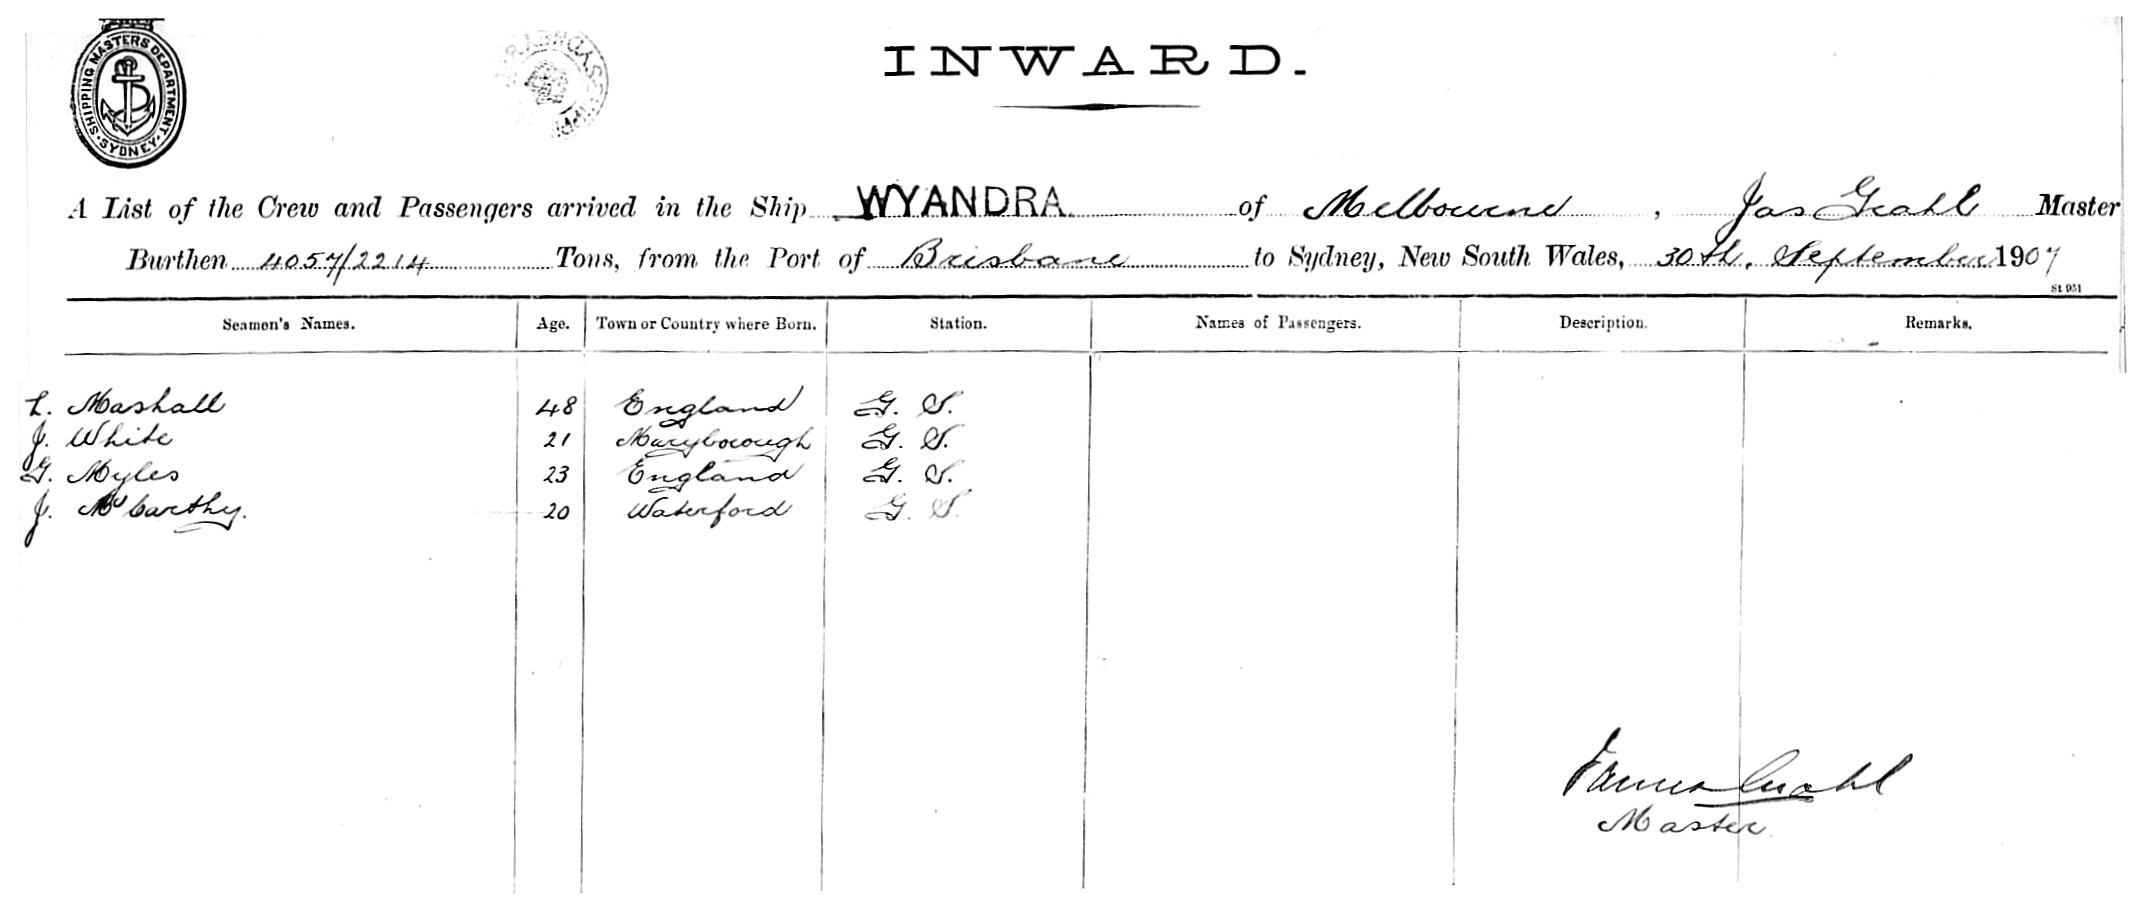 SHIPPING MASTERS DEPARTMENT. SYDNEY.
INWARD.
A List of the Crew and Passengers arrived in the Ship WYANDRA of Melbourne, Jas Grahl Master
Burthen 4057/2214 Tons, from the Port of Brisbane to Sydney, New South Wales, 30th. September 1907
St 951
Seamen's Names. Age. Town or Country where Born. Station. Names of Passengers. Description. Remarks.
Mashall 48 England G. S.
J. White 21 Maryborough G. S.
G. Myles 23 England G. S.
J. McCarthy. 20 Waterford G. S.
James Grahl
Master